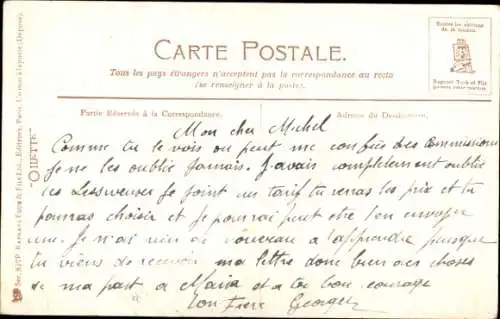 CARTE POSTALE.
Tous les pays étrangers n'acceptent pas la correspondance au recto
(se renseigner à la poste).
Partie Réservée à la Correspondance.
Adresse du Destinataire.
"ODETTE"
Mon cher Michel
Comme tu le vois on peut me confier des commissions
je ne les oublie jamais. J'avais complètement oublié
les Lessiveuses je joint un tarif tu verras les prix et tu
pourras choisir et je pourrai peut être t'en envoyer
une. Je n'ai rien de nouveau à t'apprendre puisque
tu viens de recevoir ma lettre donc bien des choses
de ma part à Maria et à toi bon courage
ton frère Georges